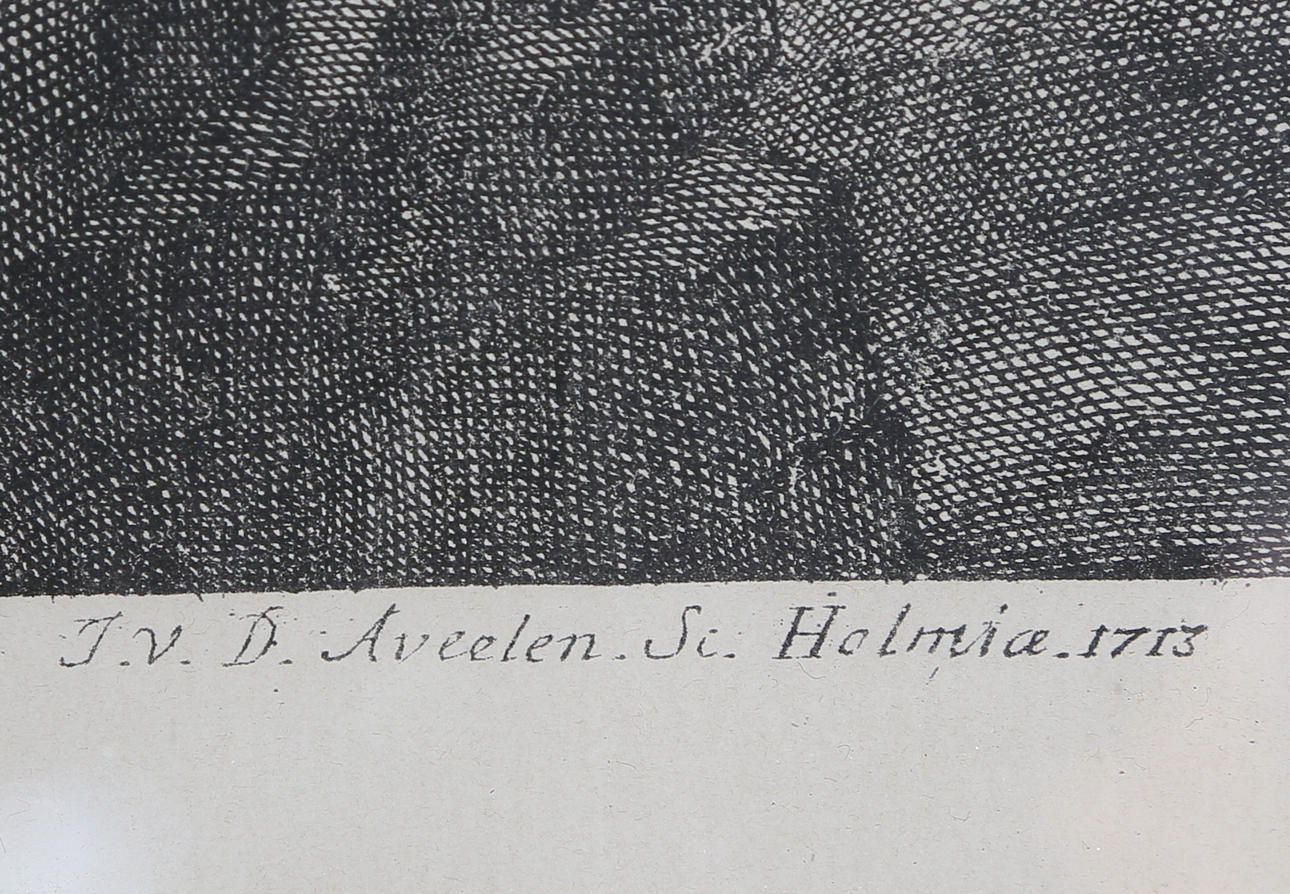 J. v. D. Aveelen. Sc. Holmiæ. 1713